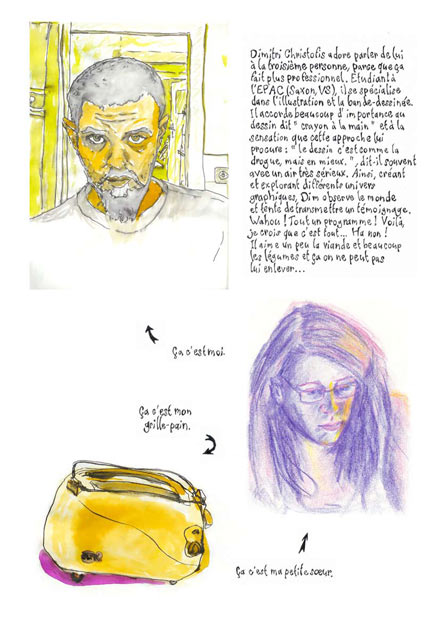 Dimitri Christofis adore parler de lui
à la troisième personne, parce que ça
fait plus professionnel. Etudiant à
l'EPAC (Saxon, VS), il se spécialise
dans l'illustration et la bande-dessinée.
Il accorde beaucoup d'importance au
dessin dit "crayon à la main" et à la
sensation que cette approche lui
procure : "le dessin c'est comme la
drogue, mais en mieux.", dit-il souvent
avec un air très sérieux. Ainsi, créant
et explorant différents univers
graphiques, Dim observe le monde
et tente de transmettre un témoignage.
Wahou ! Tout un programme ! Voilà,
je crois que c'est tout... Ha non !
Il aime un peu la viande et beaucoup
les légumes et ça on ne peut pas
lui enlever...
Ça c'est moi.
Ça c'est mon
grille-pain.
Ça c'est ma petite sœur.